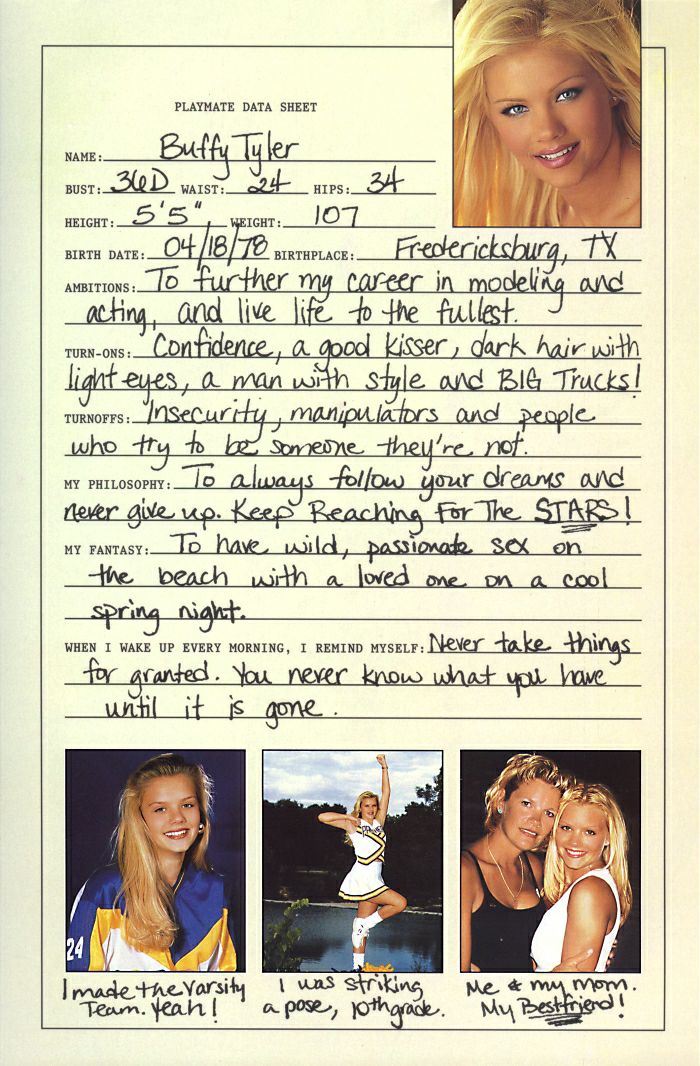 PLAYMATE DATA SHEET
NAME: Buffy Tyler
BUST: 36D WAIST: 24 HIPS: 34
HEIGHT: 5'5" WEIGHT: 107
BIRTH DATE: 04/18/78 BIRTHPLACE: Fredericksburg, TX
AMBITIONS: To further my career in modeling and
acting, and live life to the fullest.
TURN-ONS: Confidence, a good kisser, dark hair with
light eyes, a man with style and BIG Trucks!
TURNOFFS: Insecurity, manipulators and people
who try to be someone they're not.
MY PHILOSOPHY: To always follow your dreams and
never give up. Keep Reaching For The STARS!
MY FANTASY: To have wild, passionate sex on
the beach with a loved one on a cool
spring night.
WHEN I WAKE UP EVERY MORNING, I REMIND MYSELF: Never take things
for granted. You never know what you have
until it is gone.
24
I made the Varsity
Team. Yeah!
I was striking
a pose, 10th grade.
Me & my mom.
My Bestfriend!